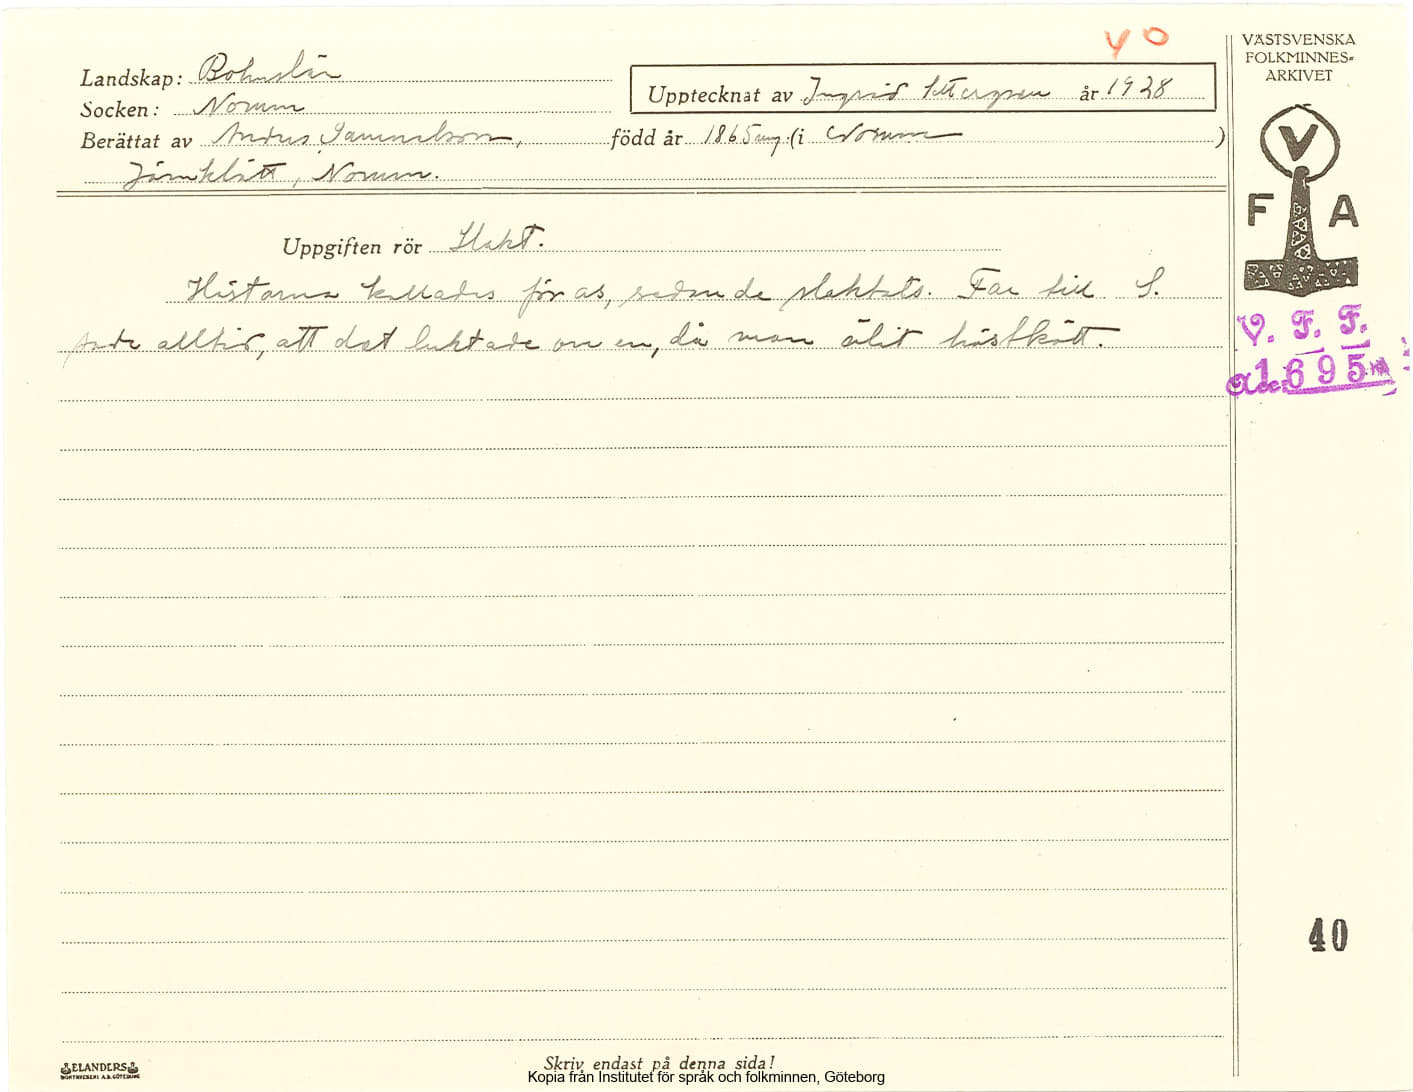 40
Landskap: Bohuslän
Socken: Norum
Upptecknat av Ingrid Settergren år 1928
Berättat av Andrus Samuelsson, född år 1865 aug. (i Norum)
Järnklätt, Norum.
Uppgiften rör Slakt.
Hästarna kallades för as, sedan de slaktats. Far till S.
sade alltid, att det luktade om en, då man ätit hästkött.
VÄSTSVENSKA
FOLKMINNES-
ARKIVET
V
F A
V. F. F.
Acc. 1695
40
ELANDERS
BOKTRYCKERI A.B. GÖTEBORG
Skriv endast på denna sida!
Kopia från Institutet för språk och folkminnen, Göteborg